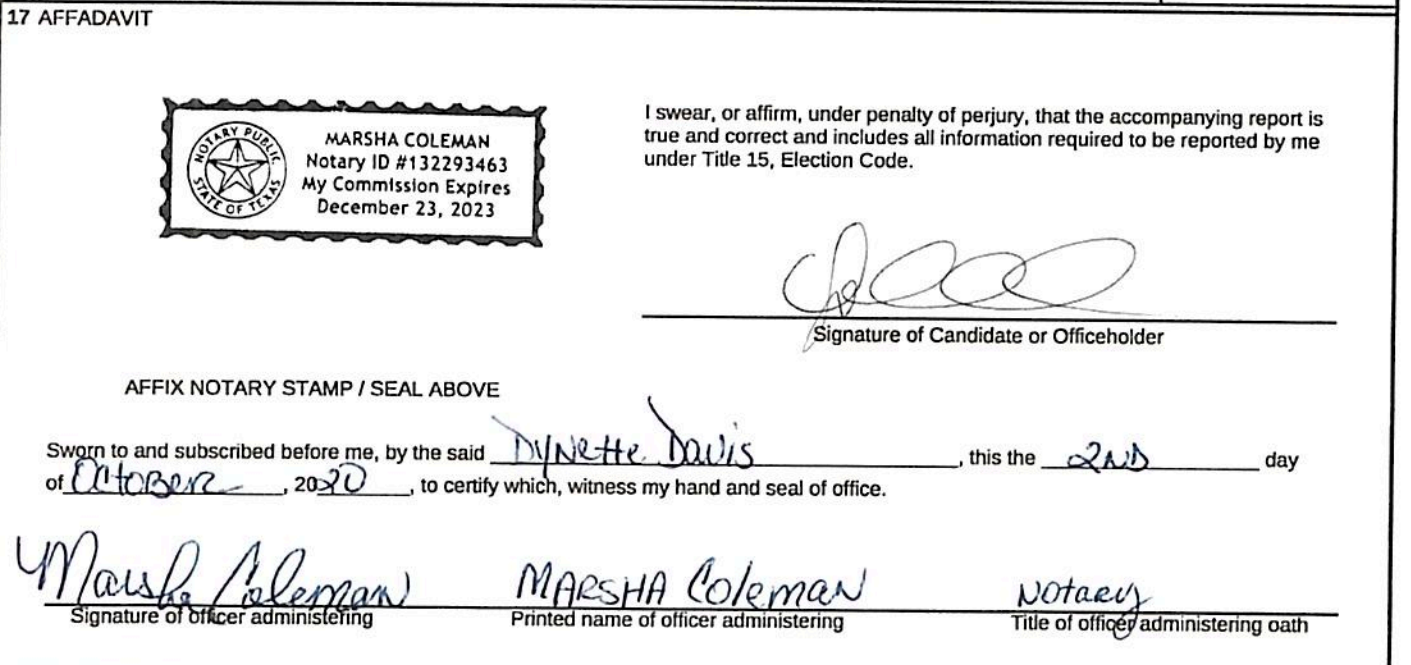 17 AFFADAVIT
NOTARY PUBLIC
STATE OF TEXAS
MARSHA COLEMAN
Notary ID #132293463
My Commission Expires
December 23, 2023
I swear, or affirm, under penalty of perjury, that the accompanying report is
true and correct and includes all information required to be reported by me
under Title 15, Election Code.
Signature of Candidate or Officeholder
AFFIX NOTARY STAMP / SEAL ABOVE
Sworn to and subscribed before me, by the said DyNette Davis, this the 2ND day
of OctoBeR, 2020, to certify which, witness my hand and seal of office.
Marsha Coleman MARSHA Coleman Notary
Signature of officer administering Printed name of officer administering Title of officer administering oath